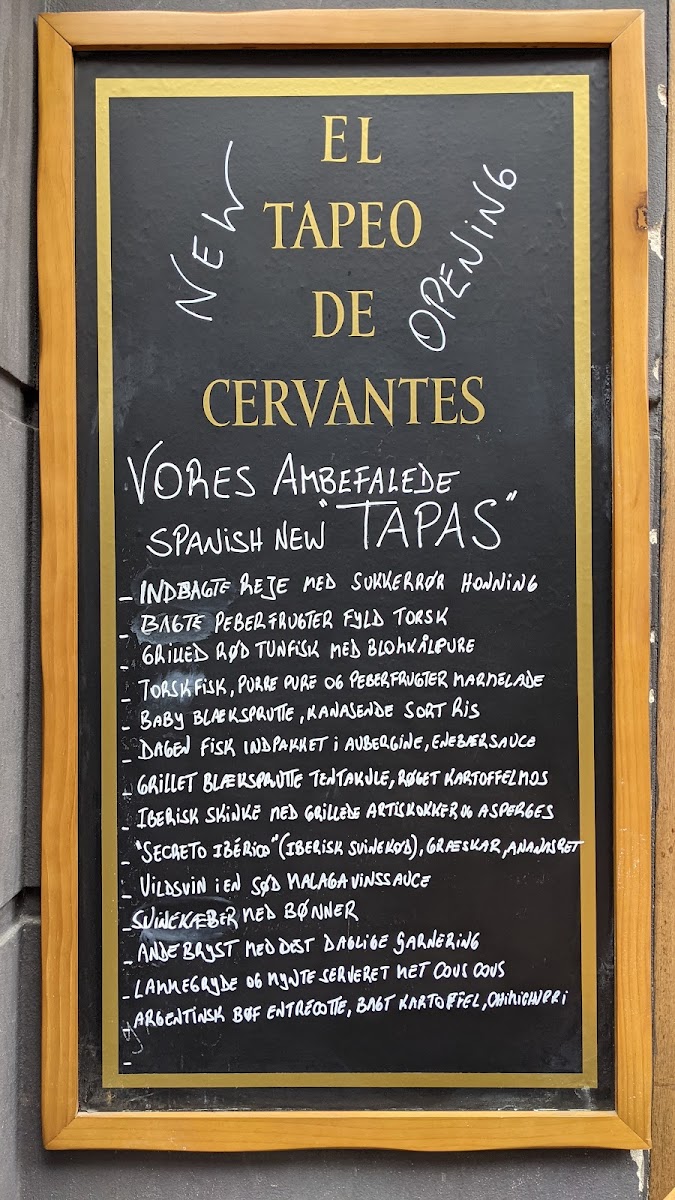 EL
TAPEO
DE
CERVANTES
NEW
OPENING
VORES AMBEFALEDE
SPANISH NEW "TAPAS"
- INDBAGTE REJE MED SUKKERRØR HONNING
- BAGTE PEBERFRUGTER FYLD TORSK
- GRILLED RØD TUNFISK MED BLOMKÅLPURE
- TORSKFISK, PURRE PURE OG PEBERFRUGTER MARMELADE
- BABY BLÆKSPRUTTE, KANASENDE SORT RIS
- DAGEN FISK INDPAKKET i AUBERGINE, ENEBÆRSAUCE
- GRILLET BLÆKSPRUTTE TENTAKULE, RØGET KARTOFFELMOS
- IBERISK SKINKE MED GRILLEDE ARTISKOKKER OG ASPERGES
- "SECRETO IBÉRICO" (IBERISK SVINEKØD), GRÆSKAR, ANANASRET
- VILDSVIN i EN SØD MALAGAVINSSAUCE
- SVINEKÆBER MED BØNNER
- ANDEBRYST MED DEST DAGLIGE GARNERING
- LAMMEGRYDE OG MYNTE SERVERET MET COUS COUS
- ARGENTINSK BØF ENTRECOTTE, BAGT KARTOFFEL, CHIMICHURRI
-